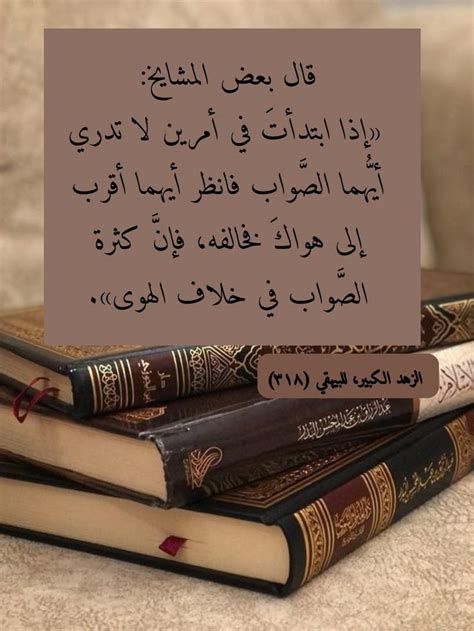 قال بعض المشايخ:
«إذا ابتدأتَ في أمرين لا تدري
أيُّهما الصَّواب فانظر أيهما أقرب
إلى هواكَ فخالفه، فإنَّ كثرة
الصَّواب في خلاف الهوى».
الزهد الكبير، للبيهقي (٣١٨)
عبد الرزاق بن عبد المحسن البدر